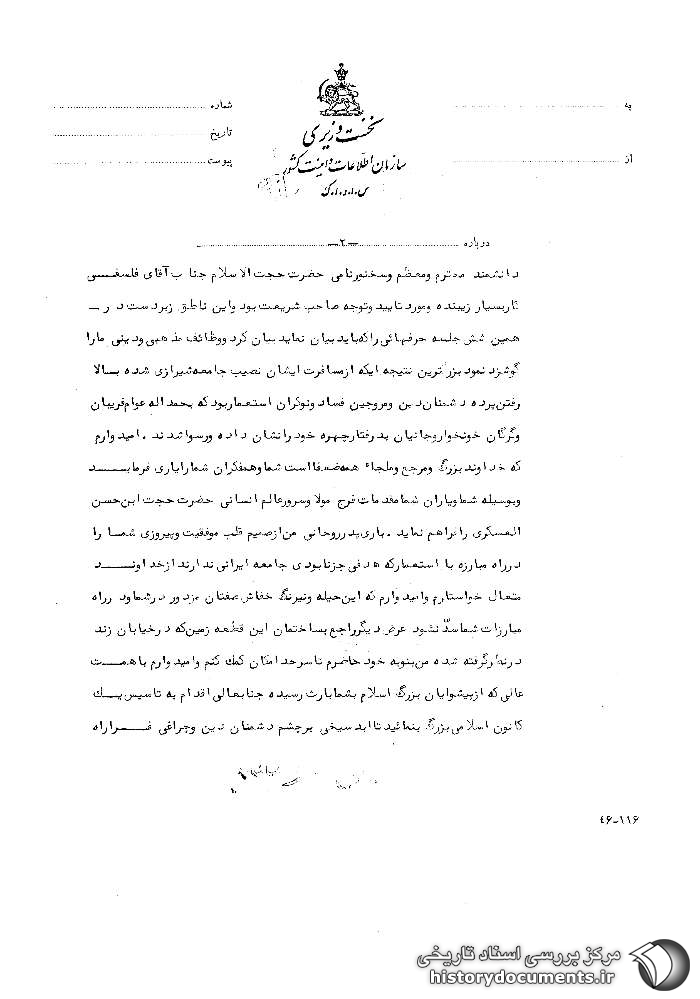 نخست وزیری
سازمان اطلاعات و امنیت کشور
س.ا.و.ا.ک
به
از
شماره
تاریخ
پیوست
درباره ـ۲ـ
دانشمند محترم ومعظم وسخنورنامی حضرت حجت الاسلام جناب آقای فلسفـــی
کاربسیار زیبنده ومورد تایید وتوجه صاحب شریعت بود واین ناطق زبردست در ـ
همین شش جلسه حرفهائی راکه باید بیان نماید بیان کرد ووظائف مذهبی ودینی مارا
گوشزد نمود بزرگترین نتیجه ایکه ازمسافرت ایشان نصیب جامعه شیرازی شده بـالا
رفتن پرده دشمنان دین ومروجین فساد ونوکران استعماربود که بحمد اله عوام فریبان
وگرگان خونخوار وجانیان بد رفتار چهره خود رانشان داده ورسوا شدند . امیدوارم
که خداوند بزرگ ومرجع وملجاء همه ضعفا است شما وهمفکران شما رایاری فرمایـــد
وبوسیله شما ویاران شما مقدمات فرج مولا وسرور عالم انسانی حضرت حجت ابن حسن
العسکری را فراهم نماید . باری پدر روحانی من از صمیم قلب موفقیت وپیروزی شمـا را
درراه مبارزه با استعمار که هدفی جزنابودی جامعه ایرانی ندارند از خداونـــد
متعال خواستارم وامیدوارم که این حیله ونیرنگ خفاش صفتان مزدور درشما ود رراه
مبارزات شما سدّ نشود عرض دیگر راجع بساختمان این قطعه زمین که درخیابان زند
درنظر گرفته شده من بنوبه خود حاضرم تا سرحد امکان کمک کنم وامیدوارم با همـت
عالی که از پیشوایان بزرگ اسلام بشما بارث رسیده جنابعالی اقدام به تاسیس یـك
کانون اسلامی بزرگ بنمائید تا ابد سیخی برچشم دشمنان دین وچراغی فـــرا راه
۴۶-۱۱۶
مرکز بررسی اسناد تاریخی
historydocuments.ir